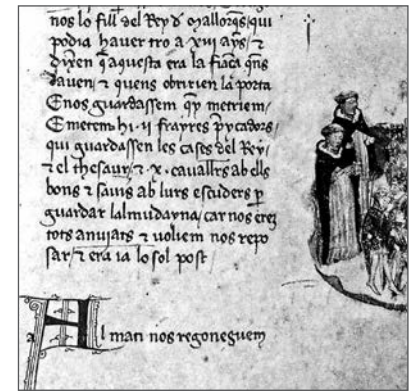 nos lo fill del Rey d̄ Mallorqs, qui
podia haver tro a xiii ays, ⁊
dixen q̄ aquesta era la fiaca q̄ns
daven, ⁊ quens obririen la porta
E nos guardassem q̄y metriem,
E metem hi · ii frayres p̄ycadors,
qui guardassen les cases del Rey,
⁊ el thesaur, ⁊ · x · cavallrs ab ells
bons ⁊ savis ab lurs escuders p̱
guardar lalmudayna, car nos erē
tots anujats ⁊ voliem nos repo
sar, ⁊ era ia lo sol post
a Al mati nos regoneguem